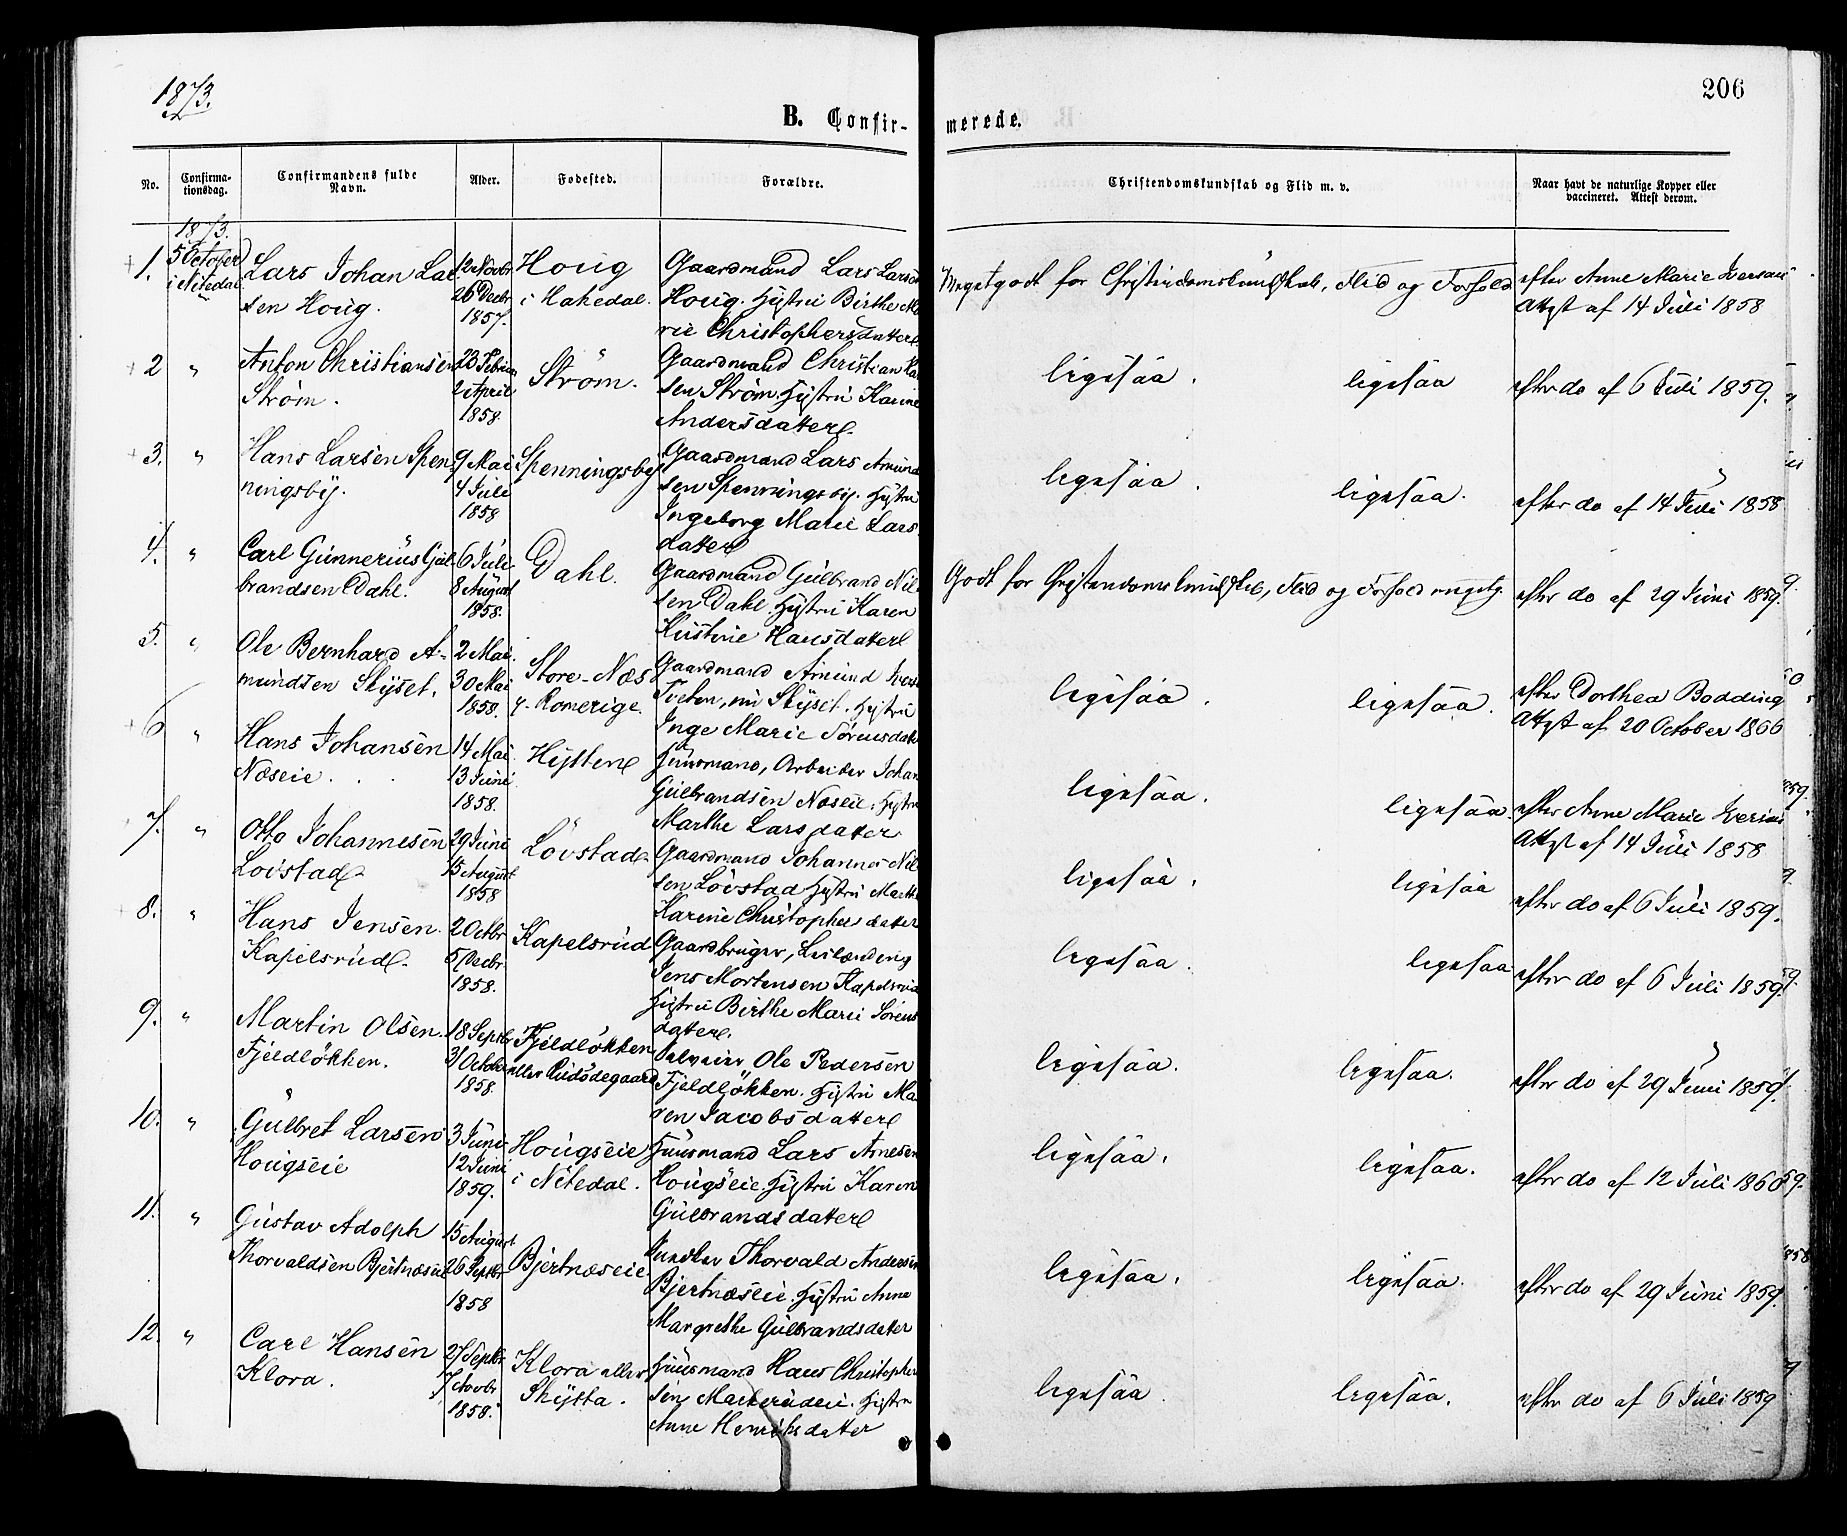 1873.
206
B. Confir-
merede.
No.
Confirma-
tionsdag.
Confirmandens fulde
Navn.
Alder.
Fodested.
Forældre.
Christendomskundskab og Flid m. v.
Naar havt de naturlige Kopper eller
vaccineret. Attest derom.
1873.
1.
5 October
i Nitedal
Lars Johan Lar
sen Houg.
12 Novbr
26 Decbr
1857.
Houg
i Hakedal.
Gaardmand Lars Larsen
Houg. Hustru Birthe Ma
rie Christophersdatter
Megetgodt for Christendomskundskab, Flid og Forhold
efter Anne Marie Iversens
Attest af 14 Juli 1858
2
"
Anton Christiansen
Strøm.
23 Februar
2 April
1858.
Strøm.
Gaardmand Christian Han
sen Strøm Hustru Karine
Andersdatter.
ligesaa. ligesaa
efter do af 6 Juli 1859.
3.
"
Hans Larsen Spen
ningsby.
9 Mai
4 Juli
1858
Spenningsby
Gaardmand Lars Amund
sen Spenningsby. Hustru
Ingeborg Marie Lars
datter
ligesaa. ligesaa.
efter do af 14 Juli 1858
4.
"
Carl Gunnerius Gul-
brandsen Dahl.
6 Juli
8 August
1858.
Dahl.
Gaardmand Gulbrand Nil
sen Dahl. Hustru Karen
Kristine Hansdatter
Godt for Christendomskundskab, Flid og Forhold megetg.
efter do af 29 Juni 1859.
5.
"
Ole Bernhard A-
mundsen Skyset.
2 Mai.
30 Mai
1858.
Store-Næs
Romerige.
Gaardmand Amund Ivers
Tveten, nu Skyset. Hustru
Inge Marie Sørensdatter
ligesaa. ligesaa.
efter Dorthea Bodding
Attest af 20 October 1866
6
"
Hans Johansen
Næseie.
14 Mai
13 Juni
1858.
Hytten
Huusmand, Arbeider Johan
Gulbrandsen Næseie. Hustru
Marthe Larsdatter
ligesaa. ligesaa.
efter Anne Marie Iversens
Attest af 14 Juli 1858
7.
"
Otto Johannesen
Løvstad
29 Juni
15 August
1858
Løvstad
Gaardmand Johannes Nil
sen Løvstad Hustru Marthe
Karine Christophersdatter
ligesaa. ligesaa
efter do af 6 Juli 1859.
8.
"
Hans Jensen.
Kapelsrud.
2 Octbr
5 Decbr
1858.
Kapelsrud
Gaardbruger, Leilænding
Jens Mortensen Kapelsrud
Hustru Birthe Marie Sørens
datter.
ligesaa. ligesaa
efter do af 6 Juli 1859.
9.
"
Martin Olsen.
Fjeldløkken.
18 Septbr
31 October
1858.
Fjeldløkken
eller Rudsødegaard
Ole Pedersen
Fjeldløkken. Hustru Ma
ren Jacobsdatter
ligesaa. ligesaa.
efter do af 29 Juni 1859.
10.
"
Gulbret Larsen
Hougseie
3 Juni
12 Juni
1859.
Hougseie
i Nitedal.
Huusmand Lars Arnesen
Hougseie, Hustru Karen
Gulbrandsdatter
ligesaa. ligesaa.
efter do af 12 Juli 1860
11.
"
Gustav Adolph
Thorvaldsen Bjertnæseie
15 August
26 Septbr
1858
Bjertnæseie
Thorvald Andersen
Bjertnæseie. Hustru Anne
Margrethe Gulbrandsdatter
ligesaa. ligesaa.
efter do af 29 Juni 1859.
12.
"
Carl Hansen
Klora.
27 Septbr
7 Novbr
1858.
Klora eller
Skytta.
Huusmand Hans Christopher
sen Markerudeie. Hustru
Anne Henriksdatter
ligesaa. ligesaa.
efter do af 6 Juli 1859